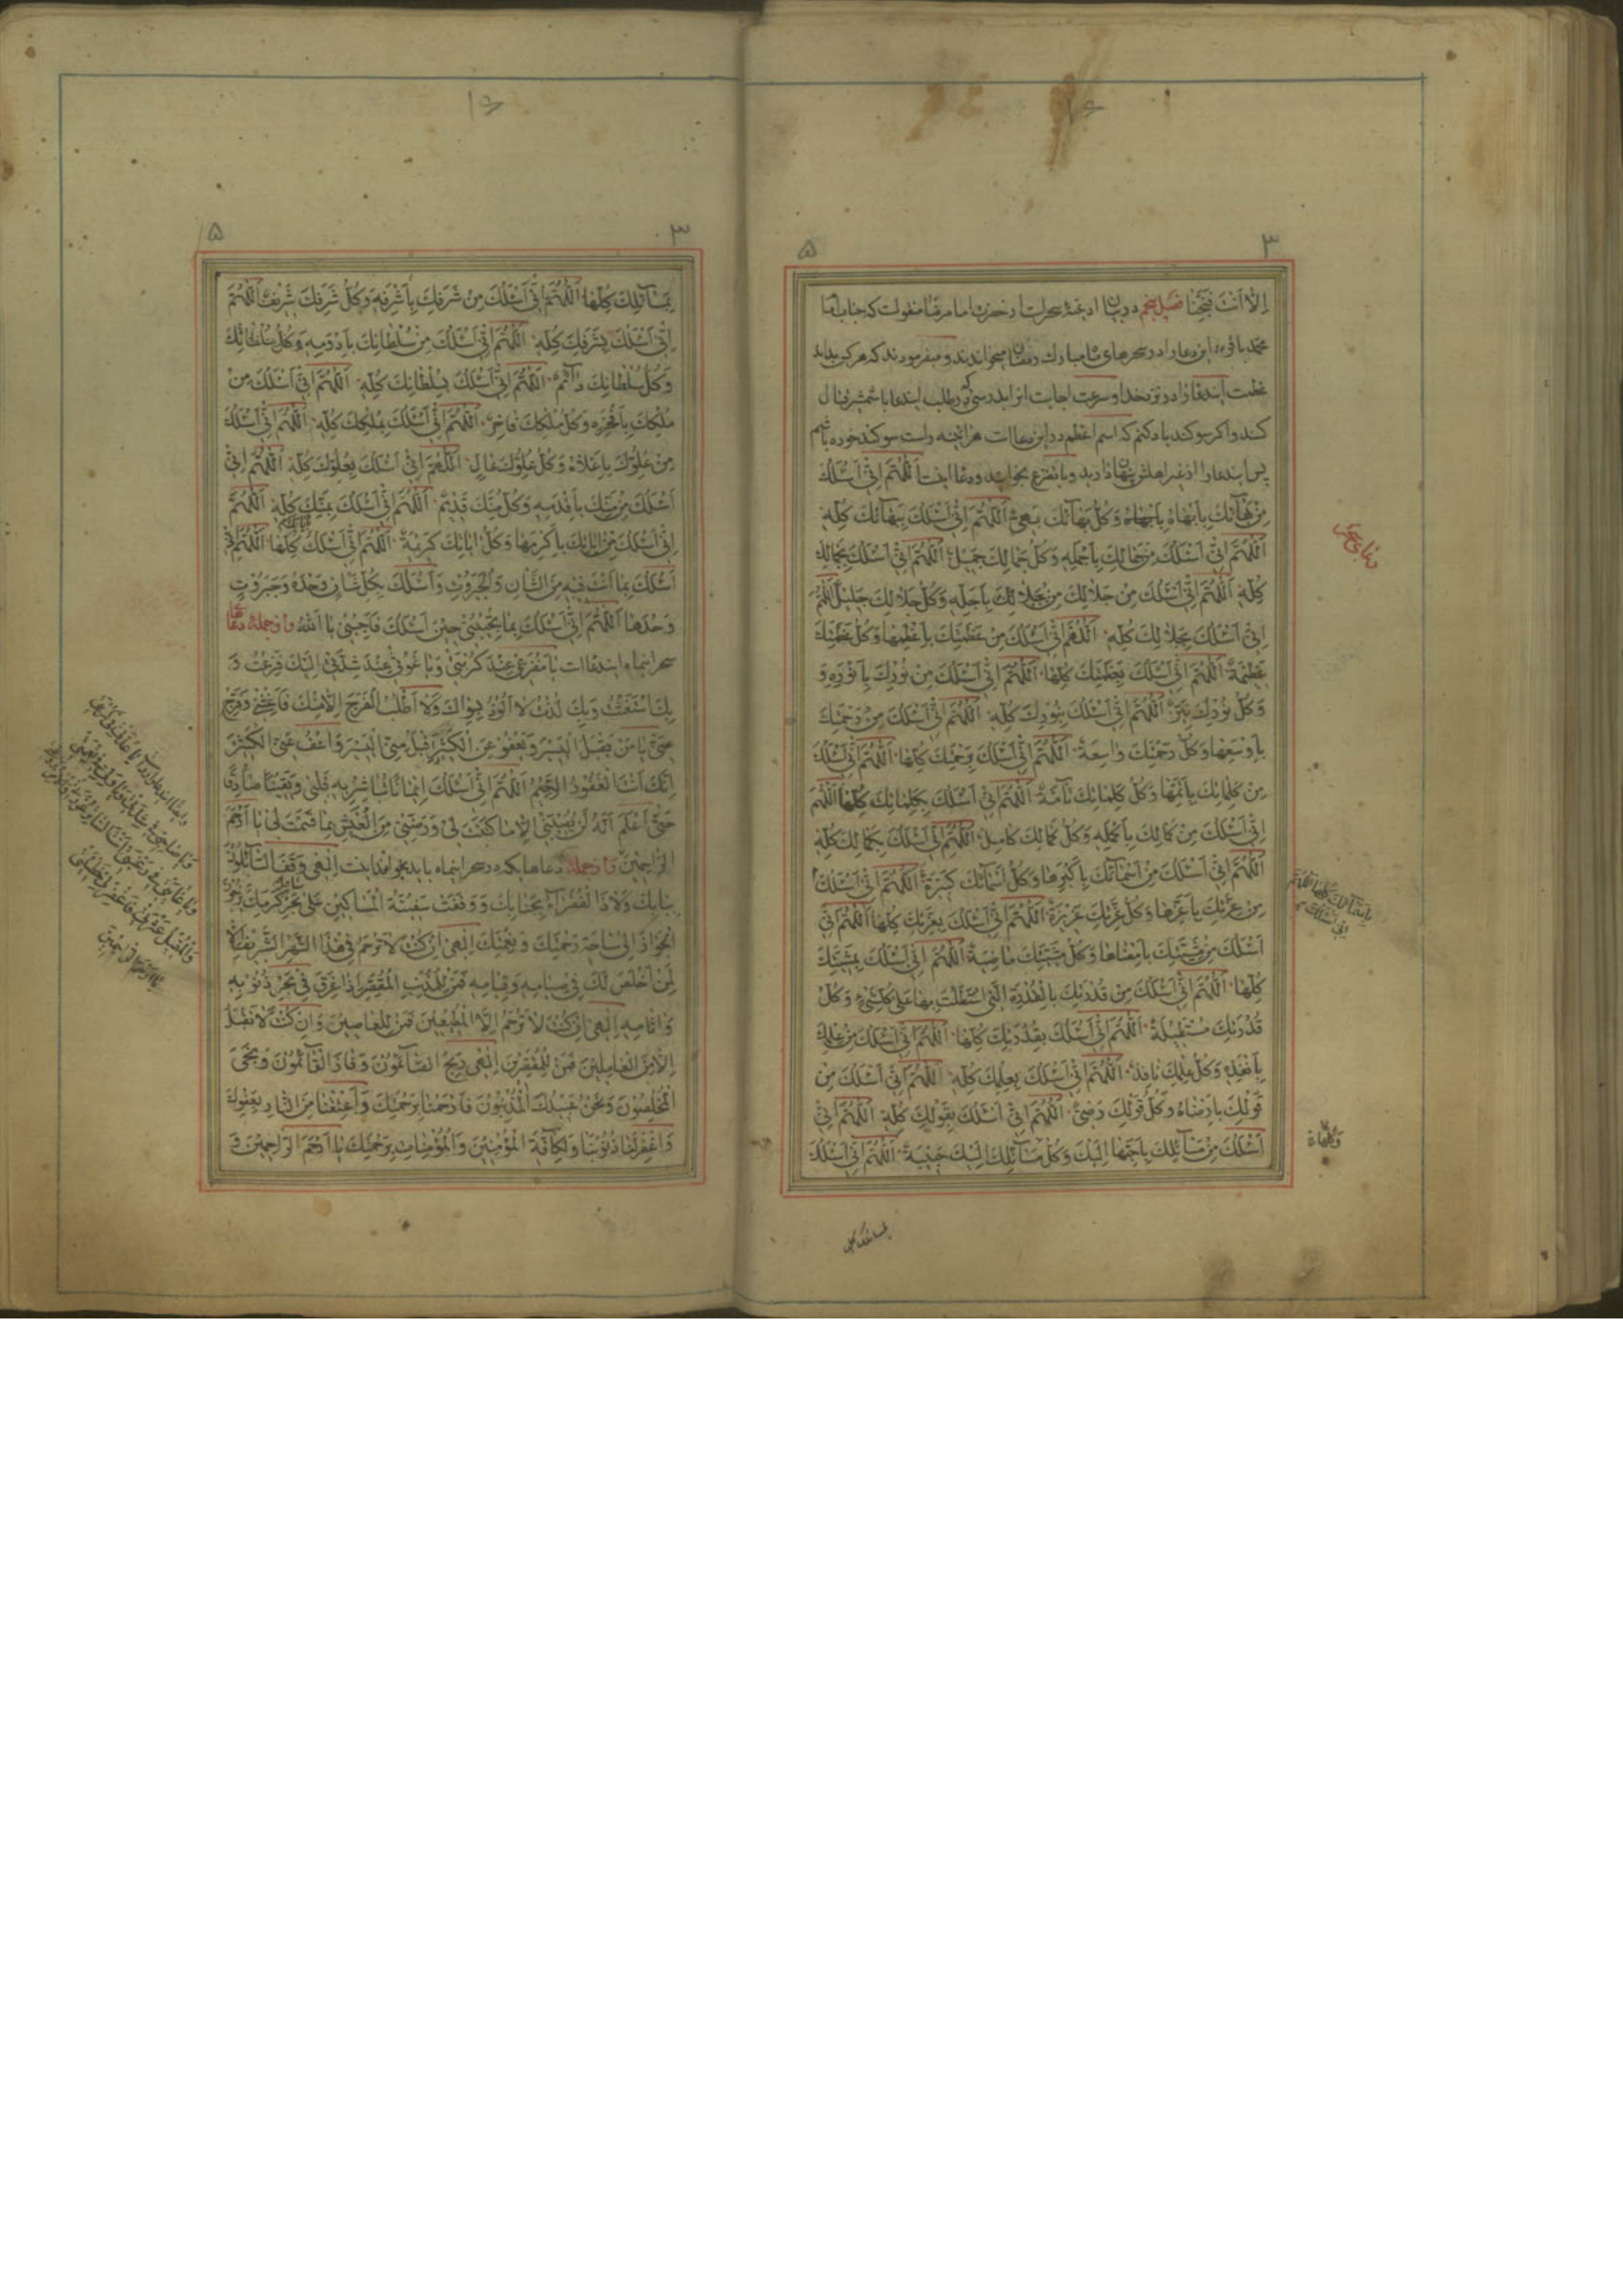 إِلَّا أَنْتَ فَنَجِّنَا فصل پنجم در بیان ادعیهٔ سحر است از حضرت امام رضا منقولست که جناب امام
محمد باقر این دعا را در سحرهای ماه مبارک رمضان میخواندند و میفرمودند که هر کس بداند
عظمت ایندعا را در نزد خدا و سرعت اجابت انرا در طلب ایندعا با شمشیر قتال
کنند و اگر سوگند یاد کنم که اسم اعظم در این دعا است هر آینه راست سوگند خورده باشم
پس ایندعا را از غیر اهلش پنهان دارید و با تضرع بخوانید و دعا اینست اَللّٰهُمَّ اِنّی اَسْئَلُكَ
مِنْ بَهَآئِكَ بِاَبْهَاهُ وَكُلُّ بَهَآئِكَ بَهِیٌّ اَللّٰهُمَّ اِنّی اَسْئَلُكَ بِبَهَآئِكَ كُلِّهِ
اَللّٰهُمَّ اِنّی اَسْئَلُكَ مِنْ جَمَالِكَ بِاَجْمَلِهِ وَكُلُّ جَمَالِكَ جَمِیلٌ اَللّٰهُمَّ اِنّی اَسْئَلُكَ بِجَمَالِكَ
كُلِّهِ اَللّٰهُمَّ اِنّی اَسْئَلُكَ مِنْ جَلَالِكَ بِاَجَلِّهِ وَكُلُّ جَلَالِكَ جَلِیلٌ اَللّٰهُمَّ
اِنّی اَسْئَلُكَ بِجَلَالِكَ كُلِّهِ اَللّٰهُمَّ اِنّی اَسْئَلُكَ مِنْ عَظَمَتِكَ بِاَعْظَمِهَا وَكُلُّ عَظَمَتِكَ
عَظِیمَةٌ اَللّٰهُمَّ اِنّی اَسْئَلُكَ بِعَظَمَتِكَ كُلِّهَا اَللّٰهُمَّ اِنّی اَسْئَلُكَ مِنْ نُورِكَ بِاَنْوَرِهِ وَ
وَكُلُّ نُورِكَ نَیِّرٌ اَللّٰهُمَّ اِنّی اَسْئَلُكَ بِنُورِكَ كُلِّهِ اَللّٰهُمَّ اِنّی اَسْئَلُكَ مِنْ رَحْمَتِكَ
بِاَوْسَعِهَا وَكُلُّ رَحْمَتِكَ وَاسِعَةٌ اَللّٰهُمَّ اِنّی اَسْئَلُكَ بِرَحْمَتِكَ كُلِّهَا اَللّٰهُمَّ اِنّی اَسْئَلُكَ
مِنْ كَلِمَاتِكَ بِاَتَمِّهَا وَكُلُّ كَلِمَاتِكَ تَآمَّةٌ اَللّٰهُمَّ اِنّی اَسْئَلُكَ بِكَلِمَاتِكَ كُلِّهَا اَللّٰهُمَّ
اِنّی اَسْئَلُكَ مِنْ كَمَالِكَ بِاَكْمَلِهِ وَكُلُّ كَمَالِكَ كَامِلٌ اَللّٰهُمَّ اِنّی اَسْئَلُكَ بِكَمَالِكَ كُلِّهِ
اَللّٰهُمَّ اِنّی اَسْئَلُكَ مِنْ اَسْمَآئِكَ بِاَكْبَرِهَا وَكُلُّ اَسْمَآئِكَ كَبِیرَةٌ اَللّٰهُمَّ اِنّی اَسْئَلُكَ
مِنْ عِزَّتِكَ بِاَعَزِّهَا وَكُلُّ عِزَّتِكَ عَزِیزَةٌ اَللّٰهُمَّ اِنّی اَسْئَلُكَ بِعِزَّتِكَ كُلِّهَا اَللّٰهُمَّ اِنّی
اَسْئَلُكَ مِنْ مَشِیَّتِكَ بِاَمْضَاهَا وَكُلُّ مَشِیَّتِكَ مَاضِیَةٌ اَللّٰهُمَّ اِنّی اَسْئَلُكَ بِمَشِیَّتِكَ
كُلِّهَا اَللّٰهُمَّ اِنّی اَسْئَلُكَ مِنْ قُدْرَتِكَ بِالْقُدْرَةِ الَّتِی اسْتَطَلْتَ بِهَا عَلٰی كُلِّ شَیْءٍ وَكُلُّ
قُدْرَتِكَ مُسْتَطِیلَةٌ اَللّٰهُمَّ اِنّی اَسْئَلُكَ بِقُدْرَتِكَ كُلِّهَا اَللّٰهُمَّ اِنّی اَسْئَلُكَ مِنْ عِلْمِكَ
بِاَنْفَذِهِ وَكُلُّ عِلْمِكَ نَافِذٌ اَللّٰهُمَّ اِنّی اَسْئَلُكَ بِعِلْمِكَ كُلِّهِ اَللّٰهُمَّ اِنّی اَسْئَلُكَ مِنْ
قَوْلِكَ بِاَرْضَاهُ وَكُلُّ قَوْلِكَ رَضِیٌّ اَللّٰهُمَّ اِنّی اَسْئَلُكَ بِقَوْلِكَ كُلِّهِ اَللّٰهُمَّ اِنّی
اَسْئَلُكَ مِنْ مَسَآئِلِكَ بِاَحَبِّهَا اِلَیْكَ وَكُلُّ مَسَآئِلِكَ اِلَیْكَ حَبِیبَةٌ اَللّٰهُمَّ اِنّی اَسْئَلُكَ
دعای سحر
بِاَسْمَآئِكَ كُلِّهَا اَللّٰهُمَّ اِنّی اَسْئَلُكَ
بِمَسَآئِلِكَ كُلِّهَا
بِمَسَآئِلِكَ كُلِّهَا اَللّٰهُمَّ اِنّی اَسْئَلُكَ مِنْ شَرَفِكَ بِاَشْرَفِهِ وَكُلُّ شَرَفِكَ شَرِیفٌ اَللّٰهُمَّ
اِنّی اَسْئَلُكَ بِشَرَفِكَ كُلِّهِ اَللّٰهُمَّ اِنّی اَسْئَلُكَ مِنْ سُلْطَانِكَ بِاَدْوَمِهِ وَكُلُّ سُلْطَانِكَ
وَكُلُّ سُلْطَانِكَ دَآئِمٌ اَللّٰهُمَّ اِنّی اَسْئَلُكَ بِسُلْطَانِكَ كُلِّهِ اَللّٰهُمَّ اِنّی اَسْئَلُكَ مِنْ
مُلْكِكَ بِاَفْخَرِهِ وَكُلُّ مُلْكِكَ فَاخِرٌ اَللّٰهُمَّ اِنّی اَسْئَلُكَ بِمُلْكِكَ كُلِّهِ اَللّٰهُمَّ اِنّی اَسْئَلُكَ
مِنْ عُلُوِّكَ بِاَعْلَاهُ وَكُلُّ عُلُوِّكَ عَالٍ اَللّٰهُمَّ اِنّی اَسْئَلُكَ بِعُلُوِّكَ كُلِّهِ اَللّٰهُمَّ اِنّی
اَسْئَلُكَ مِنْ مَنِّكَ بِاَقْدَمِهِ وَكُلُّ مَنِّكَ قَدِیمٌ اَللّٰهُمَّ اِنّی اَسْئَلُكَ بِمَنِّكَ كُلِّهِ اَللّٰهُمَّ
اِنّی اَسْئَلُكَ مِنْ اٰیَاتِكَ بِاَكْرَمِهَا وَكُلُّ اٰیَاتِكَ كَرِیمَةٌ اَللّٰهُمَّ اِنّی اَسْئَلُكَ كُلِّهَا اَللّٰهُمَّ اِنّی
اَسْئَلُكَ بِمَا اَنْتَ فِیهِ مِنَ الشَّاْنِ وَالْجَبَرُوتِ وَاَسْئَلُكَ بِكُلِّ شَاْنٍ وَحْدَهُ وَجَبَرُوتٍ
وَحْدَهَا اَللّٰهُمَّ اِنّی اَسْئَلُكَ بِمَا تُجِیبُنِی حِینَ اَسْئَلُكَ فَاَجِبْنِی یَا اَللّٰهُ و از جملهٔ دعای
سحر اینماه ایندعا است یَا مَفْزَعِی عِنْدَ كُرْبَتِی وَیَا غَوْثِی عِنْدَ شِدَّتِی اِلَیْكَ فَزِعْتُ وَ
بِكَ اسْتَغَثْتُ وَبِكَ لُذْتُ لَا اَلُوذُ بِسِوَاكَ وَلَا اَطْلُبُ الْفَرَجَ اِلَّا مِنْكَ فَاَغِثْنِی وَفَرِّجْ
عَنِّی یَا مَنْ یَقْبَلُ الْیَسِیرَ وَیَعْفُو عَنِ الْكَثِیرِ اِقْبَلْ مِنِّی الْیَسِیرَ وَاعْفُ عَنِّی الْكَثِیرَ
اِنَّكَ اَنْتَ الْغَفُورُ الرَّحِیمُ اَللّٰهُمَّ اِنّی اَسْئَلُكَ اِیمَانًا تُبَاشِرُ بِهِ قَلْبِی وَیَقِینًا صَادِقًا
حَتّٰی اَعْلَمَ اَنَّهُ لَنْ یُصِیبَنِی اِلَّا مَا كَتَبْتَ لِی وَرَضِّنِی مِنَ الْعَیْشِ بِمَا قَسَمْتَ لِی یَا اَرْحَمَ
الرَّاحِمِینَ و از جملهٔ دعاها یکه در سحر اینماه باید بخواند اینست اِلٰهِی وَقَفَ السَّآئِلُونَ
بِبَابِكَ وَلَاذَ الْفُقَرَآءُ بِجَنَابِكَ وَوَقَفَتْ سَفِینَةُ الْمَسَاكِینِ عَلٰی بَحْرِ كَرَمِكَ یَرْجُونَ
الْجَوَازَ اِلٰی سَاحَةِ رَحْمَتِكَ وَنِعْمَتِكَ اِلٰهِی اِنْ كُنْتَ لَا تَرْحَمُ فِی هٰذَا الشَّهْرِ الشَّرِیفِ اِلَّا
لِمَنْ اَخْلَصَ لَكَ فِی صِیَامِهِ وَقِیَامِهِ فَمَنْ لِلْمُذْنِبِ الْمُقَصِّرِ اِذَا غَرِقَ فِی بَحْرِ ذُنُوبِهِ
وَاٰثَامِهِ اِلٰهِی اِنْ كُنْتَ لَا تَرْحَمُ اِلَّا الْمُطِیعِینَ فَمَنْ لِلْعَاصِینَ وَاِنْ كُنْتَ لَا تَقْبَلُ
اِلَّا مِنَ الْعَامِلِینَ فَمَنْ لِلْمُقَصِّرِینَ اِلٰهِی رَبِحَ الصَّآئِمُونَ وَفَازَ الْقَآئِمُونَ وَنَجَی
الْمُخْلِصُونَ وَنَحْنُ عَبِیدُكَ الْمُذْنِبُونَ فَارْحَمْنَا بِرَحْمَتِكَ وَاَعْتِقْنَا مِنَ النَّارِ بِعَفْوِكَ
وَاغْفِرْ لَنَا ذُنُوبَنَا وَلِكَآفَّةِ الْمُؤْمِنِینَ وَالْمُؤْمِنَاتِ بِرَحْمَتِكَ یَا اَرْحَمَ الرَّاحِمِینَ وَ